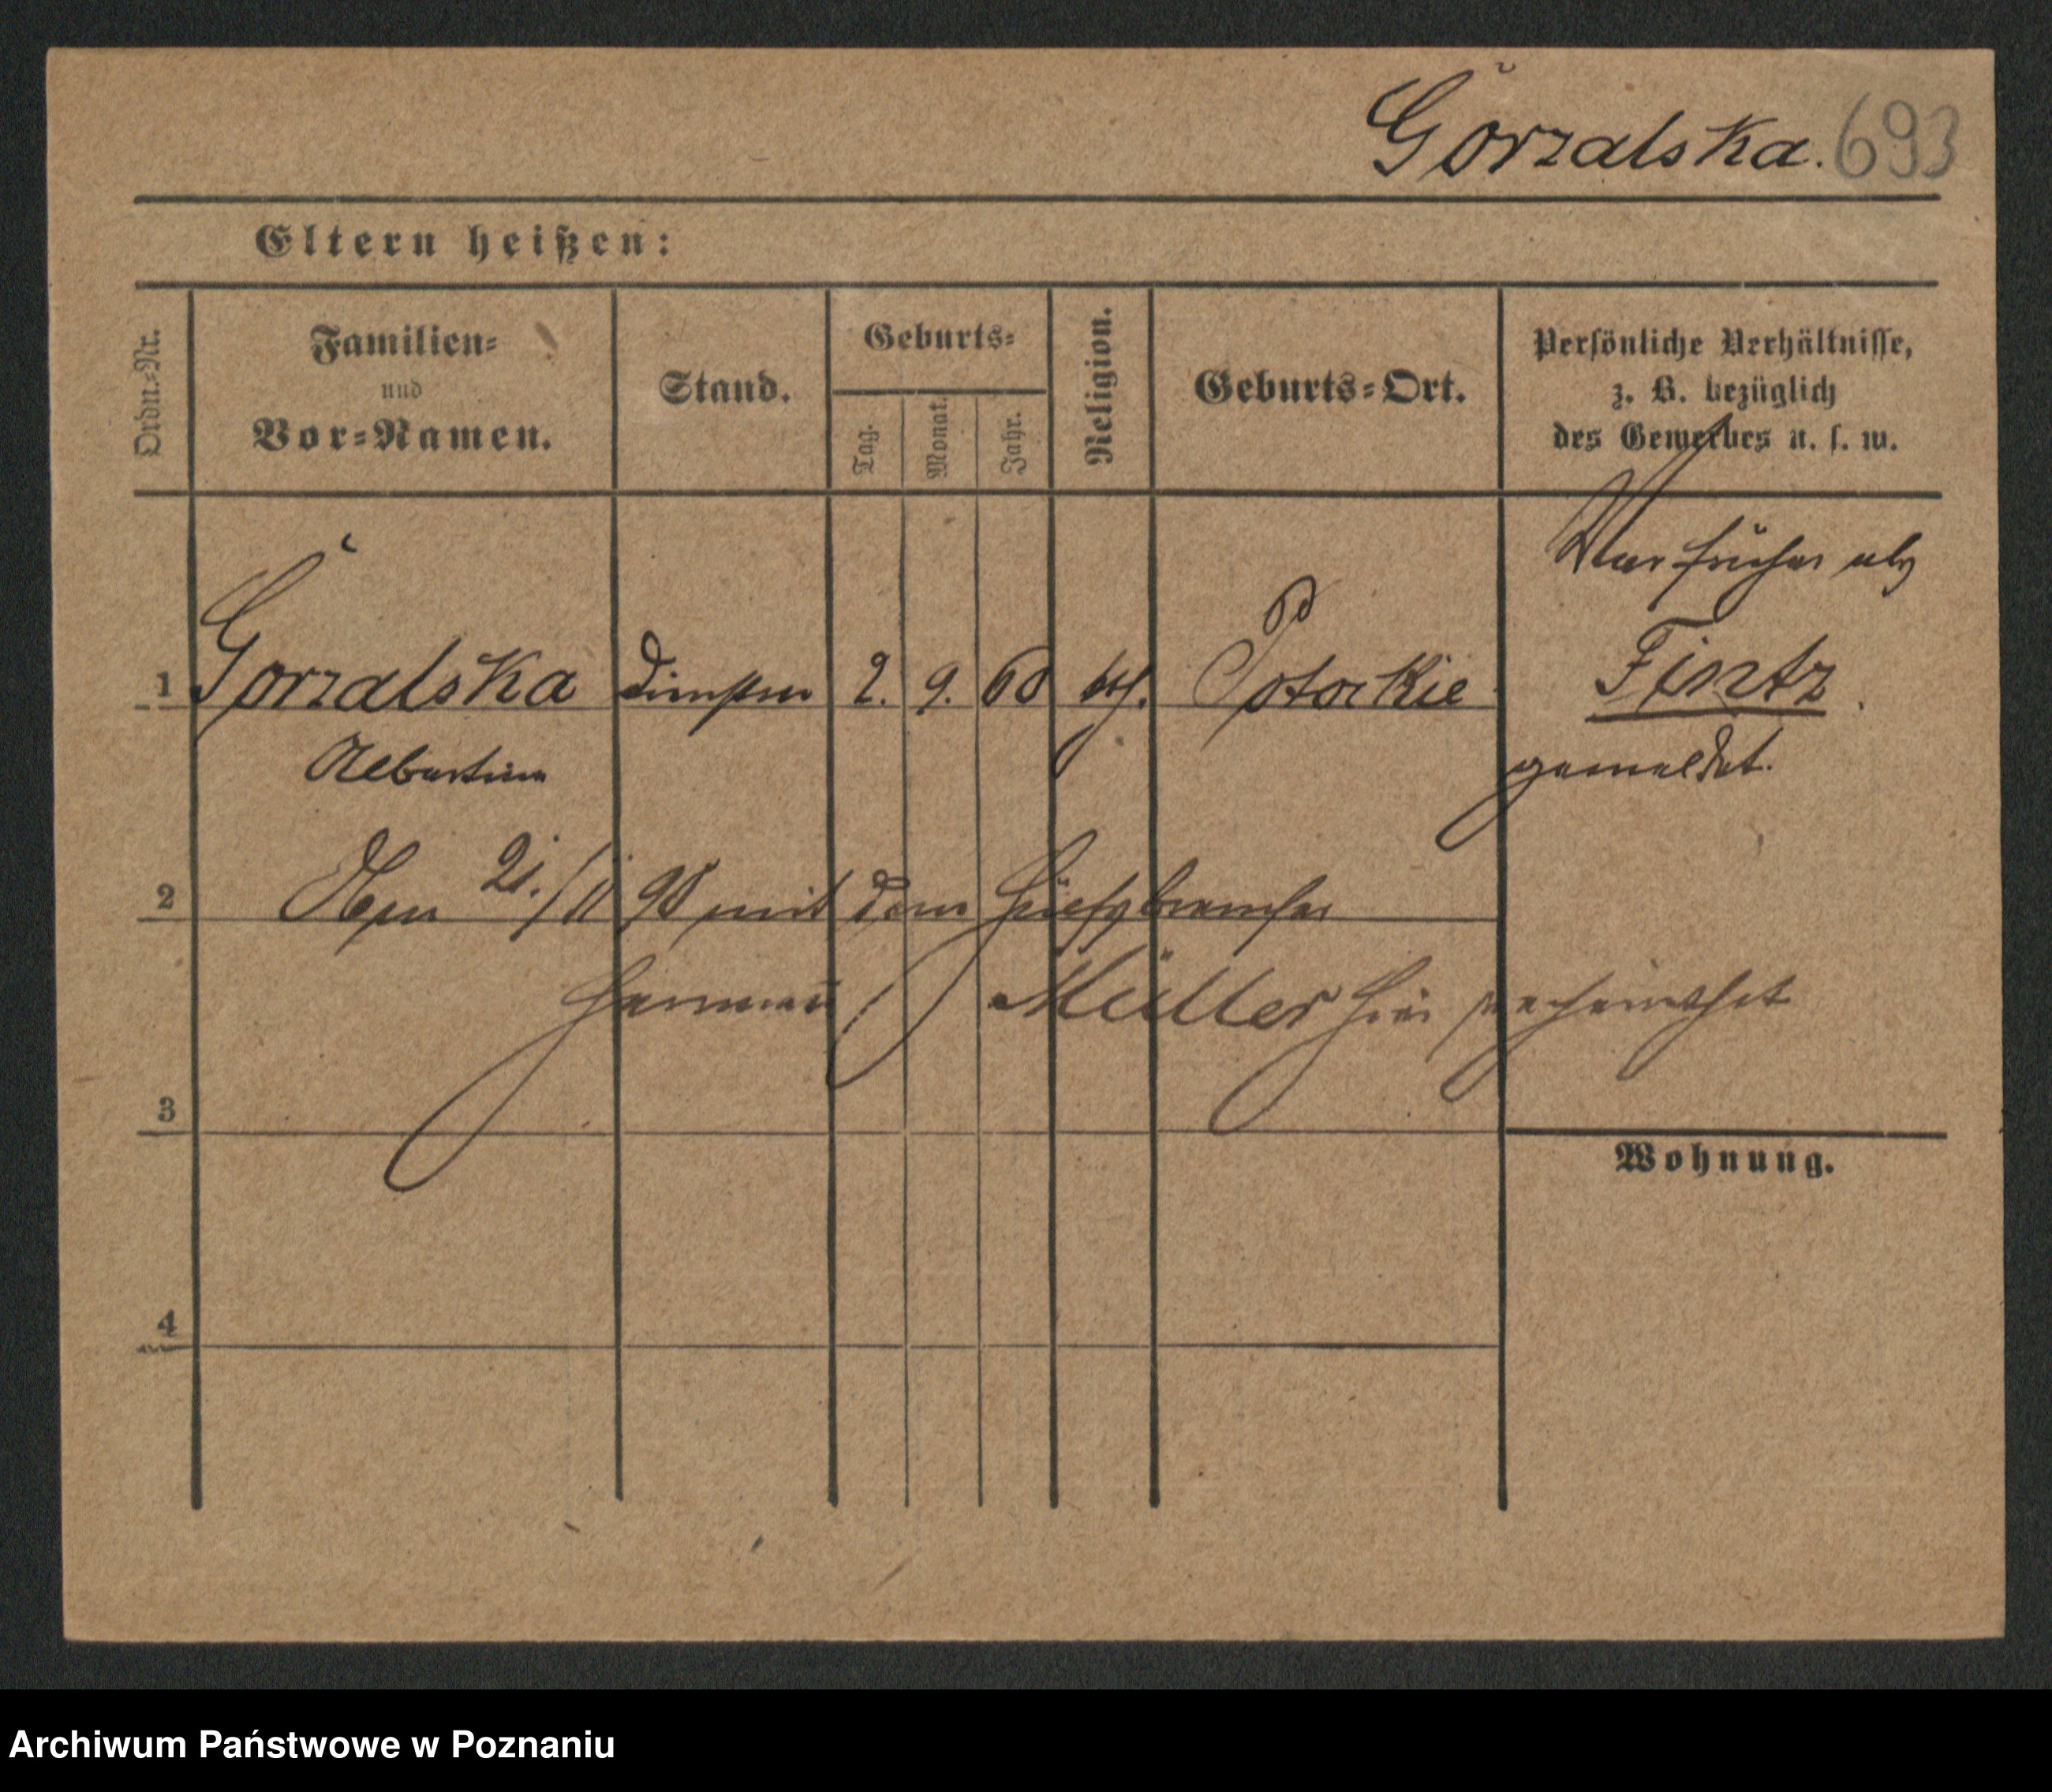 Górzalska. 693
Eltern heißen:
Ordn.-Nr.
Familien-
und
Vor-Namen.
Stand.
Geburts-
Tag.
Monat.
Jahr.
Religion.
Geburts-Ort.
Persönliche Verhältnisse,
z. B. bezüglich
des Gewerbes u. s. w.
War früher als
1 Górzalska 2. 9. 60 kth.
Fintz.
Albertine
gemeldet.
2 21./11 90 mit dem
Hermann Müller hier verheirathet
3
Wohnung.
4
Archiwum Państwowe w Poznaniu